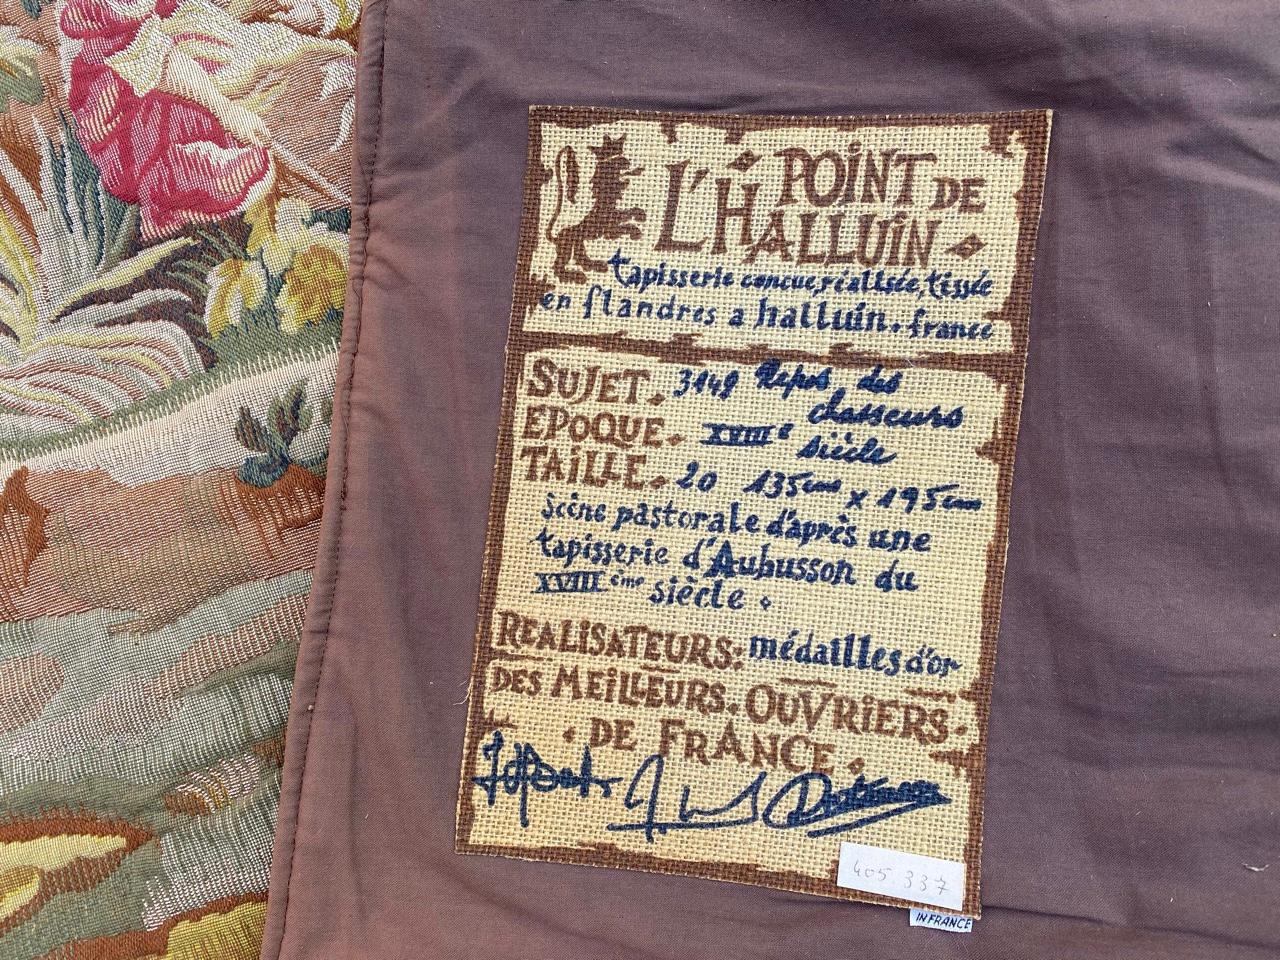 POINT DE
L'HALLUIN
tapisserie concue, réalisée, tissée
en flandres a halluin. france
SUJET. 3149 Repos des
chasseurs
EPOQUE. XVIIIe
siècle
TAILLE. 20 135cms x 195cms
scène pastorale d'après une
tapisserie d'Aubusson du
XVIIIème siècle.
REALISATEURS: médailles d'or
DES MEILLEURS. OUVRIERS.
. DE FRANCE.
405.337
IN FRANCE